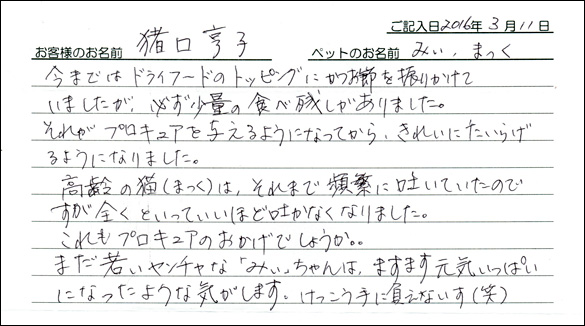 ご記入日2016年3月11日
お客様のお名前 猪口亨子 ペットのお名前 みぃ、まっく
今まではドライフードのトッピングにかつお節を振りかけて
いましたが、必ず少量の食べ残しがありました。
それがプロキュアを与えるようになってから、きれいにたいらげ
るようになりました。
高齢の猫(まっく)は、それまで頻繁に吐いていたので
すが全くといっていいほど吐かなくなりました。
これもプロキュアのおかげでしょうか。。
まだ若いヤンチャな「みぃ」ちゃんは、ますます元気いっぱい
になったような気がします。けっこう手に負えないす(笑)